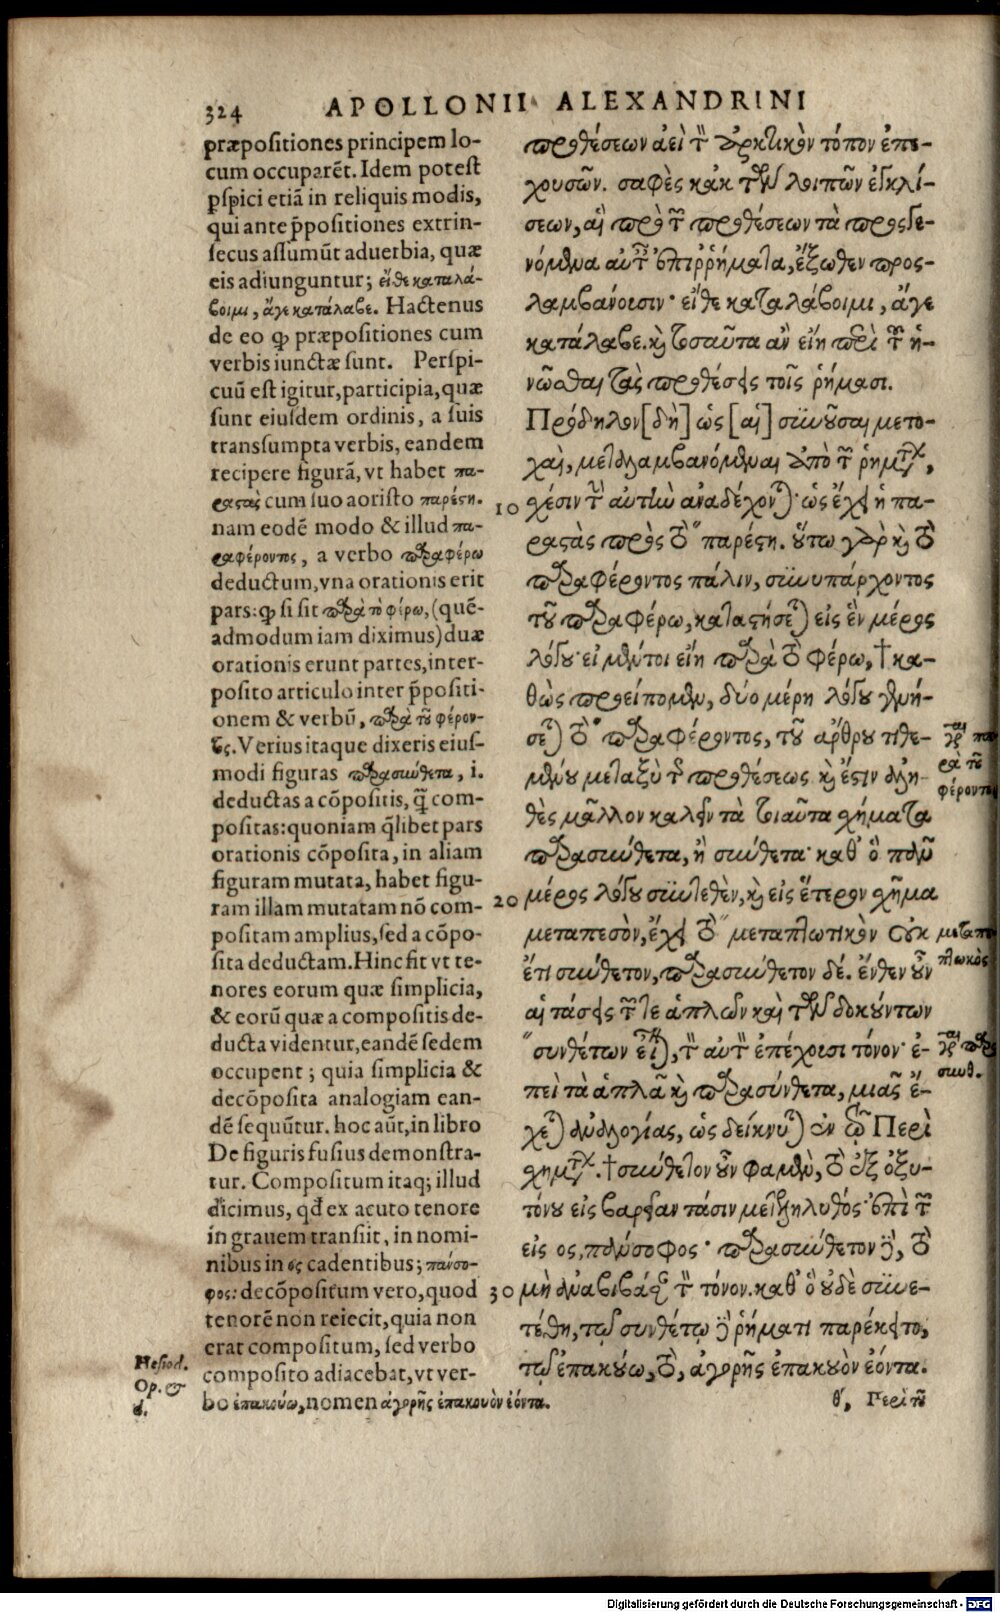 324 APOLLONII ALEXANDRINI
præpositiones principem lo-
cum occuparēt. Idem potest
pspici etiā in reliquis modis,
qui ante p̄positiones extrin-
secus assumūt aduerbia, quæ
eis adiunguntur; εἴθε καταλά-
βοιμι, ἄγε κατάλαβε. Hactenus
de eo qp præpositiones cum
verbis iunctæ sunt. Perspi-
cuū est igitur, participia, quæ
sunt eiusdem ordinis, a suis
transsumpta verbis, eandem
recipere figurā, vt habet πα-
ραστὰς cum suo aoristo παρέστη.
nam eodē modo & illud πα-
ραφέροντος, a verbo παραφέρω
deductum, vna orationis erit
pars: qp si sit παρὰ τὸ φέρω, (quē-
admodum iam diximus) duæ
orationis erunt partes, inter-
posito articulo inter p̄positi-
onem & verbū, παρὰ τοῦ φέρον-
τος. Verius itaque dixeris eius-
modi figuras παρασύνθετα, i.
deductas a cōpositis, q̄ com-
positas: quoniam q̄libet pars
orationis cōposita, in aliam
figuram mutata, habet figu-
ram illam mutatam nō com-
positam amplius, sed a cōpo-
sita deductam. Hinc fit vt te-
nores eorum quæ simplicia,
& eorū quæ a compositis de-
ducta videntur, eandē sedem
occupent; quia simplicia &
decōposita analogiam ean-
dē sequūtur. hoc aūt, in libro
De figuris fusius demonstra-
tur. Compositum itaq; illud
dicimus, qd ex acuto tenore
in grauem transiit, in nomi-
nibus in ος cadentibus; πάνσο-
φος: decōpositum vero, quod
tenorē non reiecit, quia non
erat compositum, sed verbo
composito adiacebat, vt ver-
bo ἐπακούω, nomen ἀγορῆς ἐπακουὸν ἐόντα.
Hesiod.
Op. &
d.
προθέσεων ἀεὶ τὸν ἀρκτικὸν τόπον ἐπε-
χουσῶν. σαφὲς κἀκ τῶν λοιπῶν ἐγκλί-
σεων, αἳ πρὸ τῶν προθέσεων τὰ προσγε-
νόμενα αὐτῶν ἐπιρρήματα, ἔξωθεν προσ-
λαμβάνουσιν· εἴθε καταλάβοιμι, ἄγε
κατάλαβε. καὶ τοσαῦτα ἂν εἴη περὶ τοῦ ἡ-
νῶσθαι τὰς προθέσεις τοῖς ῥήμασι.
Πρόδηλον [δὴ] ὡς [αἱ] συνοῦσαι μετο-
χαὶ, μεταλαμβανόμεναι ἀπὸ τῶν ῥημάτων,
10 σχέσιν τὴν αὐτὴν ἀναδέχονται· ὡς ἔχει ἡ πα-
ραστὰς πρὸς τὸ " παρέστη. οὕτω γὰρ καὶ τὸ
παραφέροντος πάλιν, συνυπάρχοντος
τοῦ παραφέρω, καταστήσεται εἰς ἓν μέρος
λόγου· εἰ μέντοι εἴη παρὰ τὸ φέρω, † κα-
θὼς προείπομεν, δύο μέρη λόγου γενή-
σεται τὸ " παραφέροντος, τοῦ ἄρθρου τιθε-
μένου μεταξὺ τῆς προθέσεως καὶ ἔστιν ἀλη-
θὲς μᾶλλον καλεῖν τὰ τοιαῦτα σχήματα
παρασύνθετα, ἢ σύνθετα· καθ' ὃ πᾶν
20 μέρος λόγου συντεθὲν, καὶ εἰς ἕτερον σχῆμα
μεταπεσὸν, ἔχει τὸ " μεταπλωτικὸν οὐκ
ἔτι σύνθετον, παρασύνθετον δέ. ἔνθεν οὖν
αἱ τάσεις τῶν τε ἁπλῶν καὶ τῶν δοκούντων
" συνθέτων εἶναι, τὸν αὐτὸν ἐπέχουσι τόνον· ἐ-
πεὶ τὰ ἁπλᾶ καὶ παρασύνθετα, μιᾶς ἔ-
χεται ἀναλογίας, ὡς δείκνυται ἐν τῷ Περὶ
σχημάτων. † σύνθετον οὖν φαμὲν, τὸ ἐξ ὀξυ-
τόνου εἰς βαρεῖαν τάσιν μετεληλυθός· ἐπὶ τῶν
εἰς ος, πάνσοφος· παρασύνθετον δὲ, τὸ
30 μὴ ἀναβιβάζον τὸν τόνον. καθ' ὃ οὐδὲ συνε-
τέθη, τῷ συνθέτῳ δὲ ῥήματι παρέκειτο,
τῷ ἐπακούω, τὸ, ἀγορῆς ἐπακουὸν ἐόντα.
θ, Περὶ τοῦ
Digitalisierung gefördert durch die Deutsche Forschungsgemeinschaft - DFG